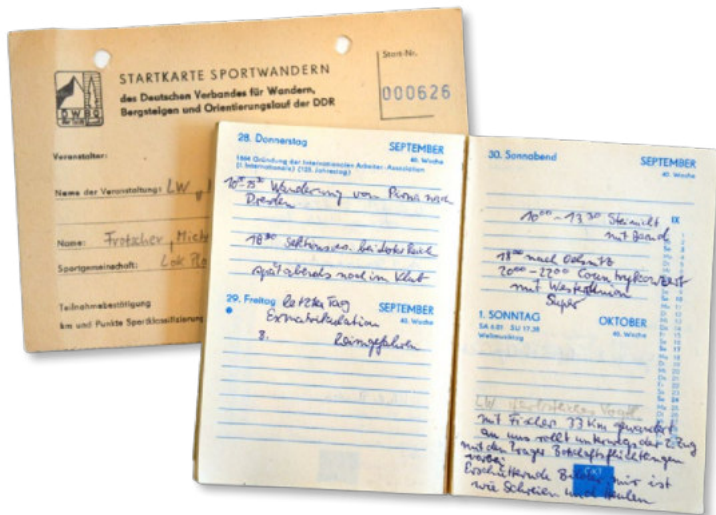 STARTKARTE SPORTWANDERN
des Deutschen Verbandes für Wandern,
Bergsteigen und Orientierungslauf der DDR
Start-Nr.
000626
DWBO
Veranstalter:
Name der Veranstaltung: LW
Name: Frotscher, Mich
Sportgemeinschaft: Lok
Teilnahmebestätigung
km und Punkte Sportklassifizierung
28. Donnerstag SEPTEMBER
40. Woche
1864 Gründung der Internationalen Arbeiter-Assoziation
(I. Internationale) (125. Jahrestag)
Wanderung von Pirna nach
Dresden
18 30
spät abends noch im Klub
29. Freitag letzter Tag SEPTEMBER
40. Woche
Exmatrikulation
8. heimgefahren
30. Sonnabend SEPTEMBER
40. Woche
IX
10 00 - 13 30
mit
18 00 nach Oelsnitz
20 00 - 22 00 Countrykonzert
mit
Super
1. SONNTAG OKTOBER
SA 6.01 SU 17.38 40. Woche
Weltmusiktag
LW Herbstliches Vogtl.
mit Fischer 33 km gewandert
an uns rollt unterwegs der 2. Zug
mit den Prager Botschaftsflüchtlingen
vorbei
Erschütternde Bilder, mir ist
wie Schreien und Heulen